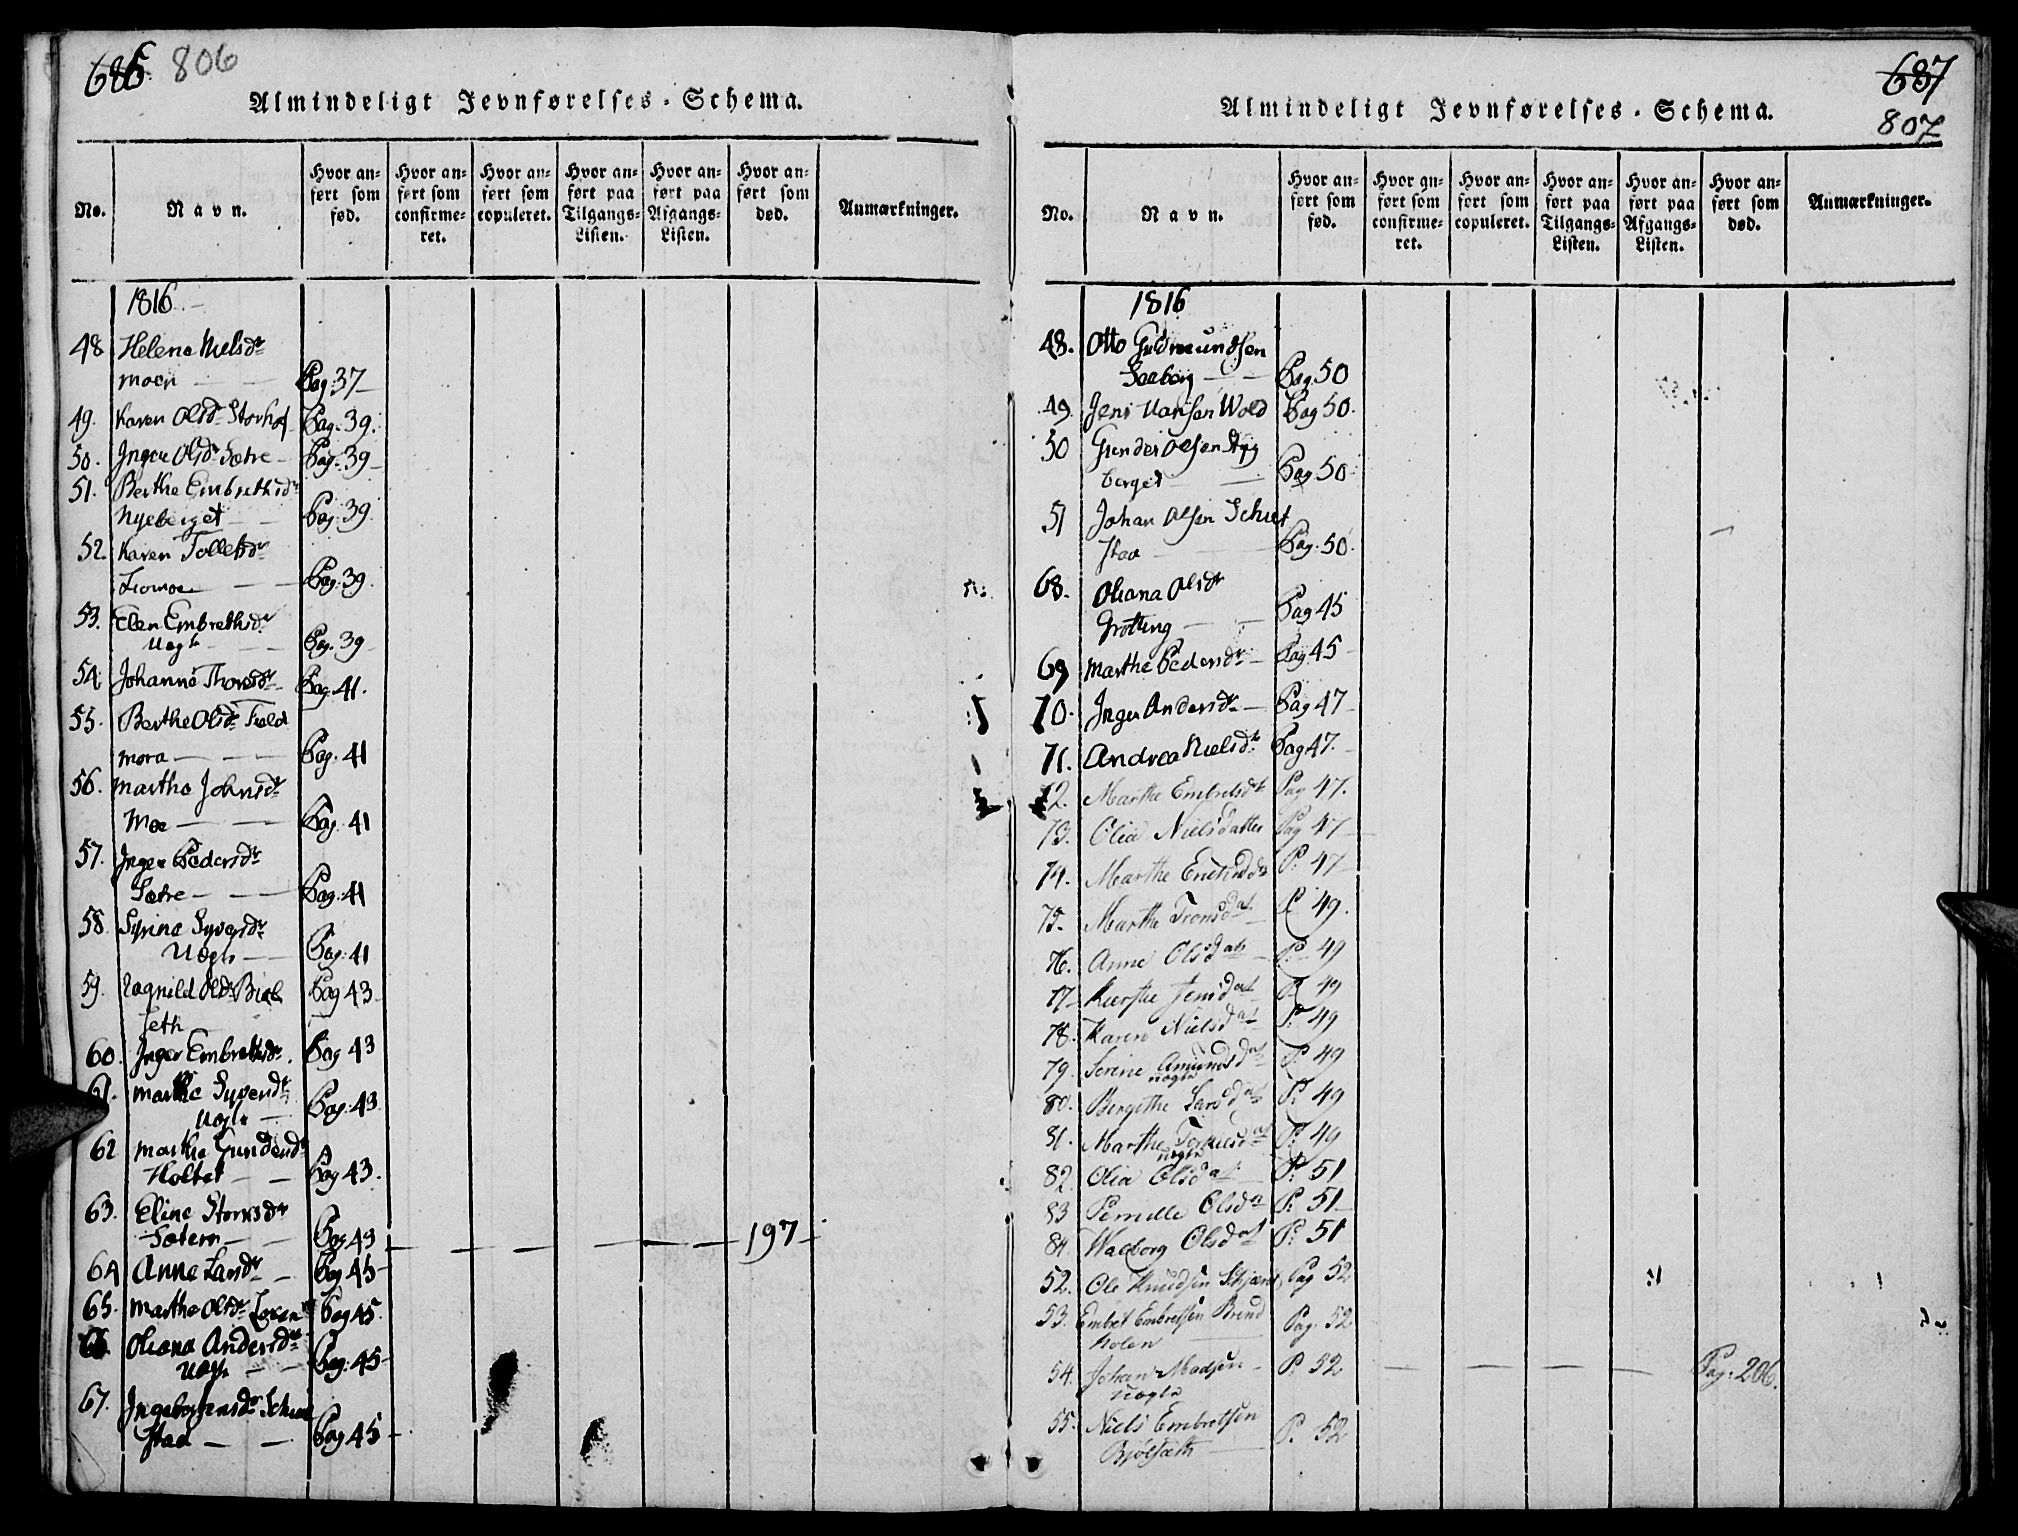 686 806
Almindeligt Jevnførelses-Schema.
No.
Navn.
Hvor anført som fød.
Hvor anført som confirmeret.
Hvor anført som copuleret.
Hvor anført paa Tilgangs-Listen.
Hvor anført paa Afgangs-Listen.
Hvor anført som død.
Anmærkninger.
1816
48 Helene Nielsdr
Moen Pag: 37
49. Karen Olsdr Storhof Pag: 39.
50. Inger Olsdr Sætre Pag: 39
51. Berthe Embrethsdr
Nyeberget Pag: 39
52. Karen Tollefsdr
Pag: 39.
53. Elen Embrethsdr
Uægte Pag: 39
54 Johanne Thorsdr Pag: 41.
55. Berthe Olsdr Field
mora Pag: 41
56. Marthe Johnsdr
Moe Pag: 41
57. Inger Pedersdr
Sætre Pag: 41
58 Syrine Syversdr
Uægte Pag: 41
59. Ragnild Olsdr Biøl
seth Pag 43
60. Inger Embrethsdr. Pag 43
61. Marthe Syversdr
Uægte Pag: 43
62 Marthe Gundersdr
Holtet Pag 43.
63. Eline Stensdr
Sætern Pag 43 197
64 Anne Larsdr Pag 45
65. Marthe Olsdr Pag 45.
66. Oliana Andersdr
Uægte Pag: 45
67. Ingeborg Jensdr Schiæ
stad Pag 45
687
807
Almindeligt Jevnførelses-Schema.
No.
Navn.
Hvor anført som fød.
Hvor anført som confirmeret.
Hvor anført som copuleret.
Hvor anført paa Tilgangs-Listen.
Hvor anført paa Afgangs-Listen.
Hvor anført som død.
Anmærkninger.
1816
48. Otto Gudmundsen
Seeberg Pag. 50
49. Jens Hansen Wold Pag 50.
50 Gunder Olsen Nyy
berget Pag 50
51 Johan Olsen Schiet
staa Pag: 50.
68. Oliana Olsdr
Grøtting Pag 45
69 Marthe Pedersdr Pag 45
70. Inger Andersdr Pag 47
71. Andrea Nielsdr Pag 47.
72. Marthe Embretsdr Pag 47.
73. Olia Nielsdatter Pag 47
74. Marthe Erichsdr P. 47
75. Marthe Tronsdat P. 49.
76. Anne Olsdat P. 49
77 Kierstie Jensdat P. 49
78. Karen Nielsdat P. 49
79. Serine Amundsdat P. 49
uægte
80. Bergithe Larsdat P. 49
81. Marthe Torkelsdat P. 49
uægte
82. Olia Olsdat P. 51
83 Pernille Olsdat P. 51
84. Walborg Olsdat P. 51
52. Ole Knudsen Pag 52
53. Embret Embretsen Brend
holen Pag. 52
54. Johan Madsen P. 52 Pag. 206.
uægte
55. Niels Embretsen
Bjølsæth P. 52